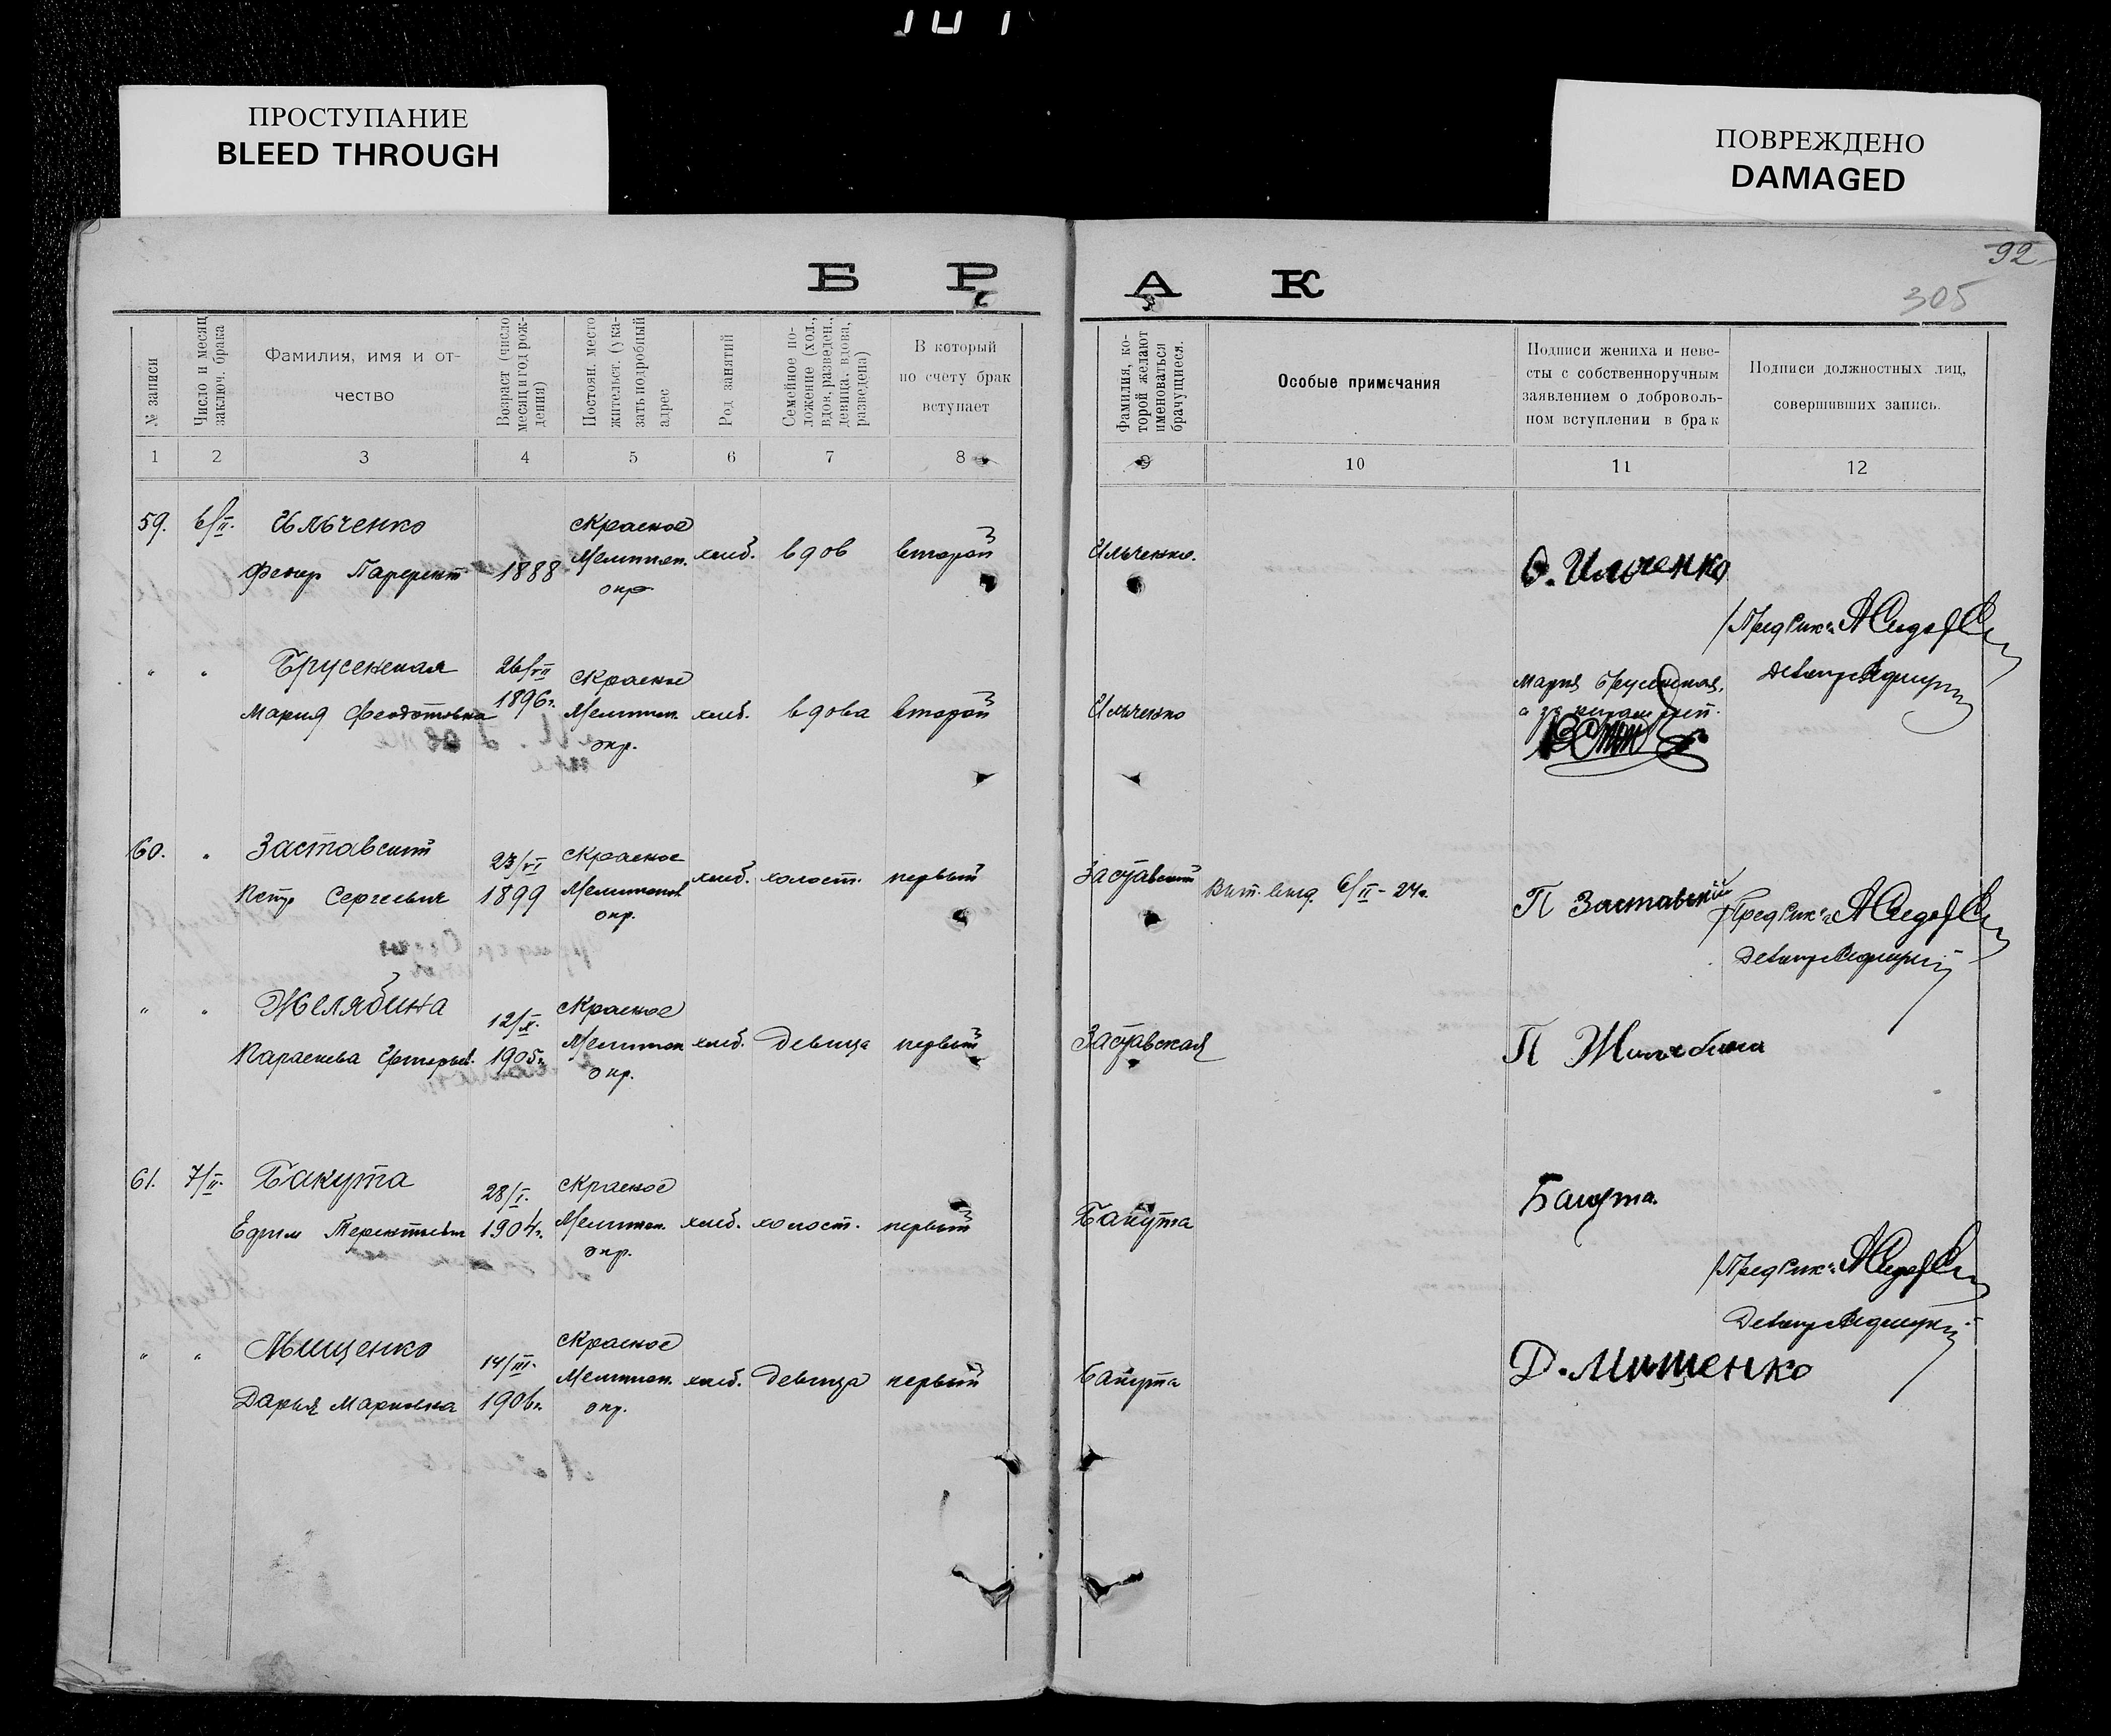 ПРОСТУПАНИЕ
BLEED THROUGH
ПОВРЕЖДЕНО
DAMAGED
92
305
Б Р А К
№ записи
Число и месяц
заключ. брака
Фамилия, имя и от-
чество
Возраст (число
месяц и год рож-
дения)
Постоян. место
жительст. (ука-
зать подробный
адрес
Род занятий
Семейное по-
ложение (хол.,
вдов, разведен.,
девица, вдова,
разведена)
В который
по счету брак
вступает
Фамилия, ко-
торой желают
именоваться
брачущиеся.
Особые примечания
Подписи жениха и неве-
сты с собственноручным
заявлением о доброволь-
ном вступлении в брак
Подписи должностных лиц,
совершивших запись.
1 2 3 4 5 6 7 8 9 10 11 12
59. 6/II. Ильченко
1888
с Красное
Мелитоп.
окр
хлеб. вдов второй Ильченко.
Ф. Ильченко
" " Брусенская
Мария Федотовна
26/VII
1896г.
с Красное
Мелитоп.
окр.
хлеб. вдова второй Ильченко
Мария Брусенская,
60. " Заставский
Петр Сергеевич
23/VI
1899
с Красное
Мелитопол
окр.
хлеб. холост. первый Заставский
6/II - 24г.
П Заставский
" " Желябина
Параскева Григорьев.
12/X.
1905г.
с Красное
Мелитоп
окр.
хлеб. девица первый Заставская
П Желебина
61. 7/II. Бакута
Ефим Терентьевич
28/I.
1904г.
с Красное
Мелитоп.
окр.
хлеб. холост. первый Бакута
Бакута.
" " Мищенко
Дарья Марковна
14/III.
1906г.
с Красное
Мелитоп.
окр.
хлеб. девица первый Бакута
Д. Мищенко